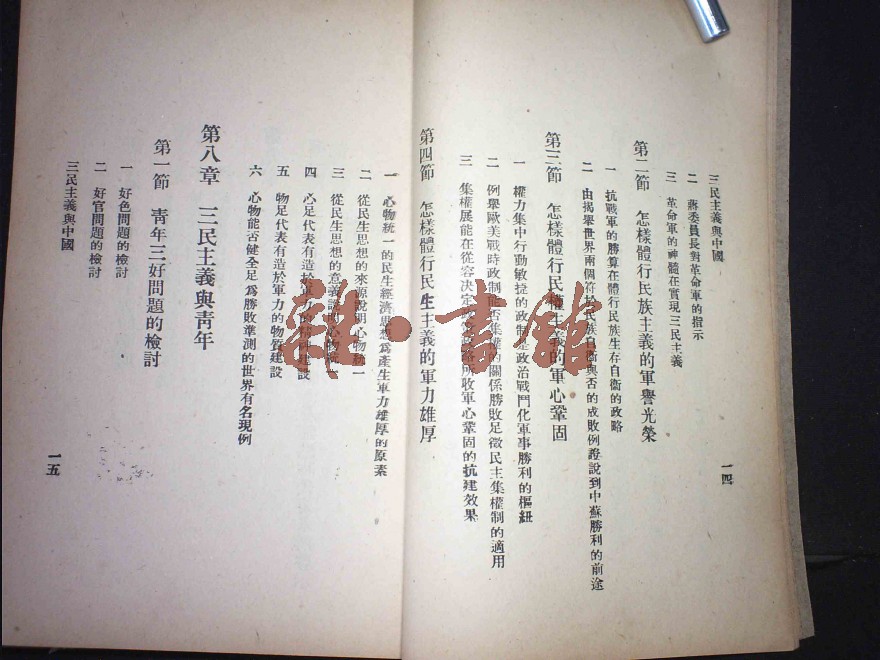 三民主義與中國
二 蔣委員長對革命軍的指示
三 革命軍的神髓在實現三民主義
第二節 怎樣體行民族主義的軍譽光榮
一 抗戰軍的勝算在體行民族生存自衞的政略
二 由揭舉世界兩個符於民族自衞與否的成敗例證說到中蘇勝利的前途
第三節 怎樣體行民權主義的軍心鞏固
一 權力集中行動敏捷的政制是政治戰鬥化軍事勝利的樞紐
二 例舉歐美戰時政制能否集權的關係勝敗足徵民主集權制的適用
三 集權展能在從容決定 所收軍心鞏固的抗建效果
第四節 怎樣體行民生主義的軍力雄厚
一四
一 心物統一的民生經濟思想爲產生軍力雄厚的原素
二 從民生思想的來源說明心物統一
三 從民生思想的意義說明心物統一
四 心足代表有造於軍力的精神建設
五 物足代表有造於軍力的物質建設
六 心物能否健全足爲勝敗準測的世界有名現例
第八章 三民主義與靑年
第一節 靑年三好問題的檢討
一 好色問題的檢討
二 好官問題的檢討
三民主義與中國
一五
雜·書館